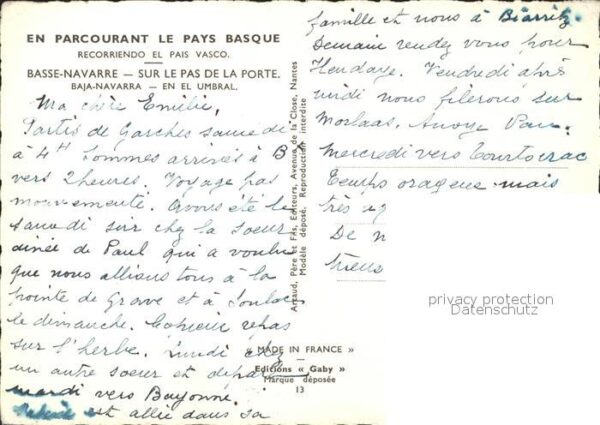 EN PARCOURANT LE PAYS BASQUE
RECORRIENDO EL PAIS VASCO.
BASSE-NAVARRE — SUR LE PAS DE LA PORTE.
BAJA-NAVARRA — EN EL UMBRAL.
Ma chère Emilie,
Partis de Garches samedi
à 4H sommes arrivés à B
vers 2 heures. Voyage pas
mouvementé. Avons été le
samedi soir chez la soeur
ainée de Paul qui a voulu
que nous allions tous à la
pointe de Grave et à Soulac
le dimanche. Copieux repas
sur l'herbe. Lundi chez
un autre soeur et départ
mardi vers Bayonne.
est allée dans sa
famille et nous à Biarritz
Demain rendez vous pour
Hendaye. Vendredi après
midi nous filerons sur
Morlaas. Anoye Pau.
Mercredi vers Tourtoirac
Temps orageux mais
très ag
De n
trieus
Artaud, Père et Fils, Editeurs, Avenue de la Close, Nantes
Modèle déposé. Reproduction interdite
« MADE IN FRANCE »
Editions « Gaby »
Marque déposée
13
privacy protection
Datenschutz